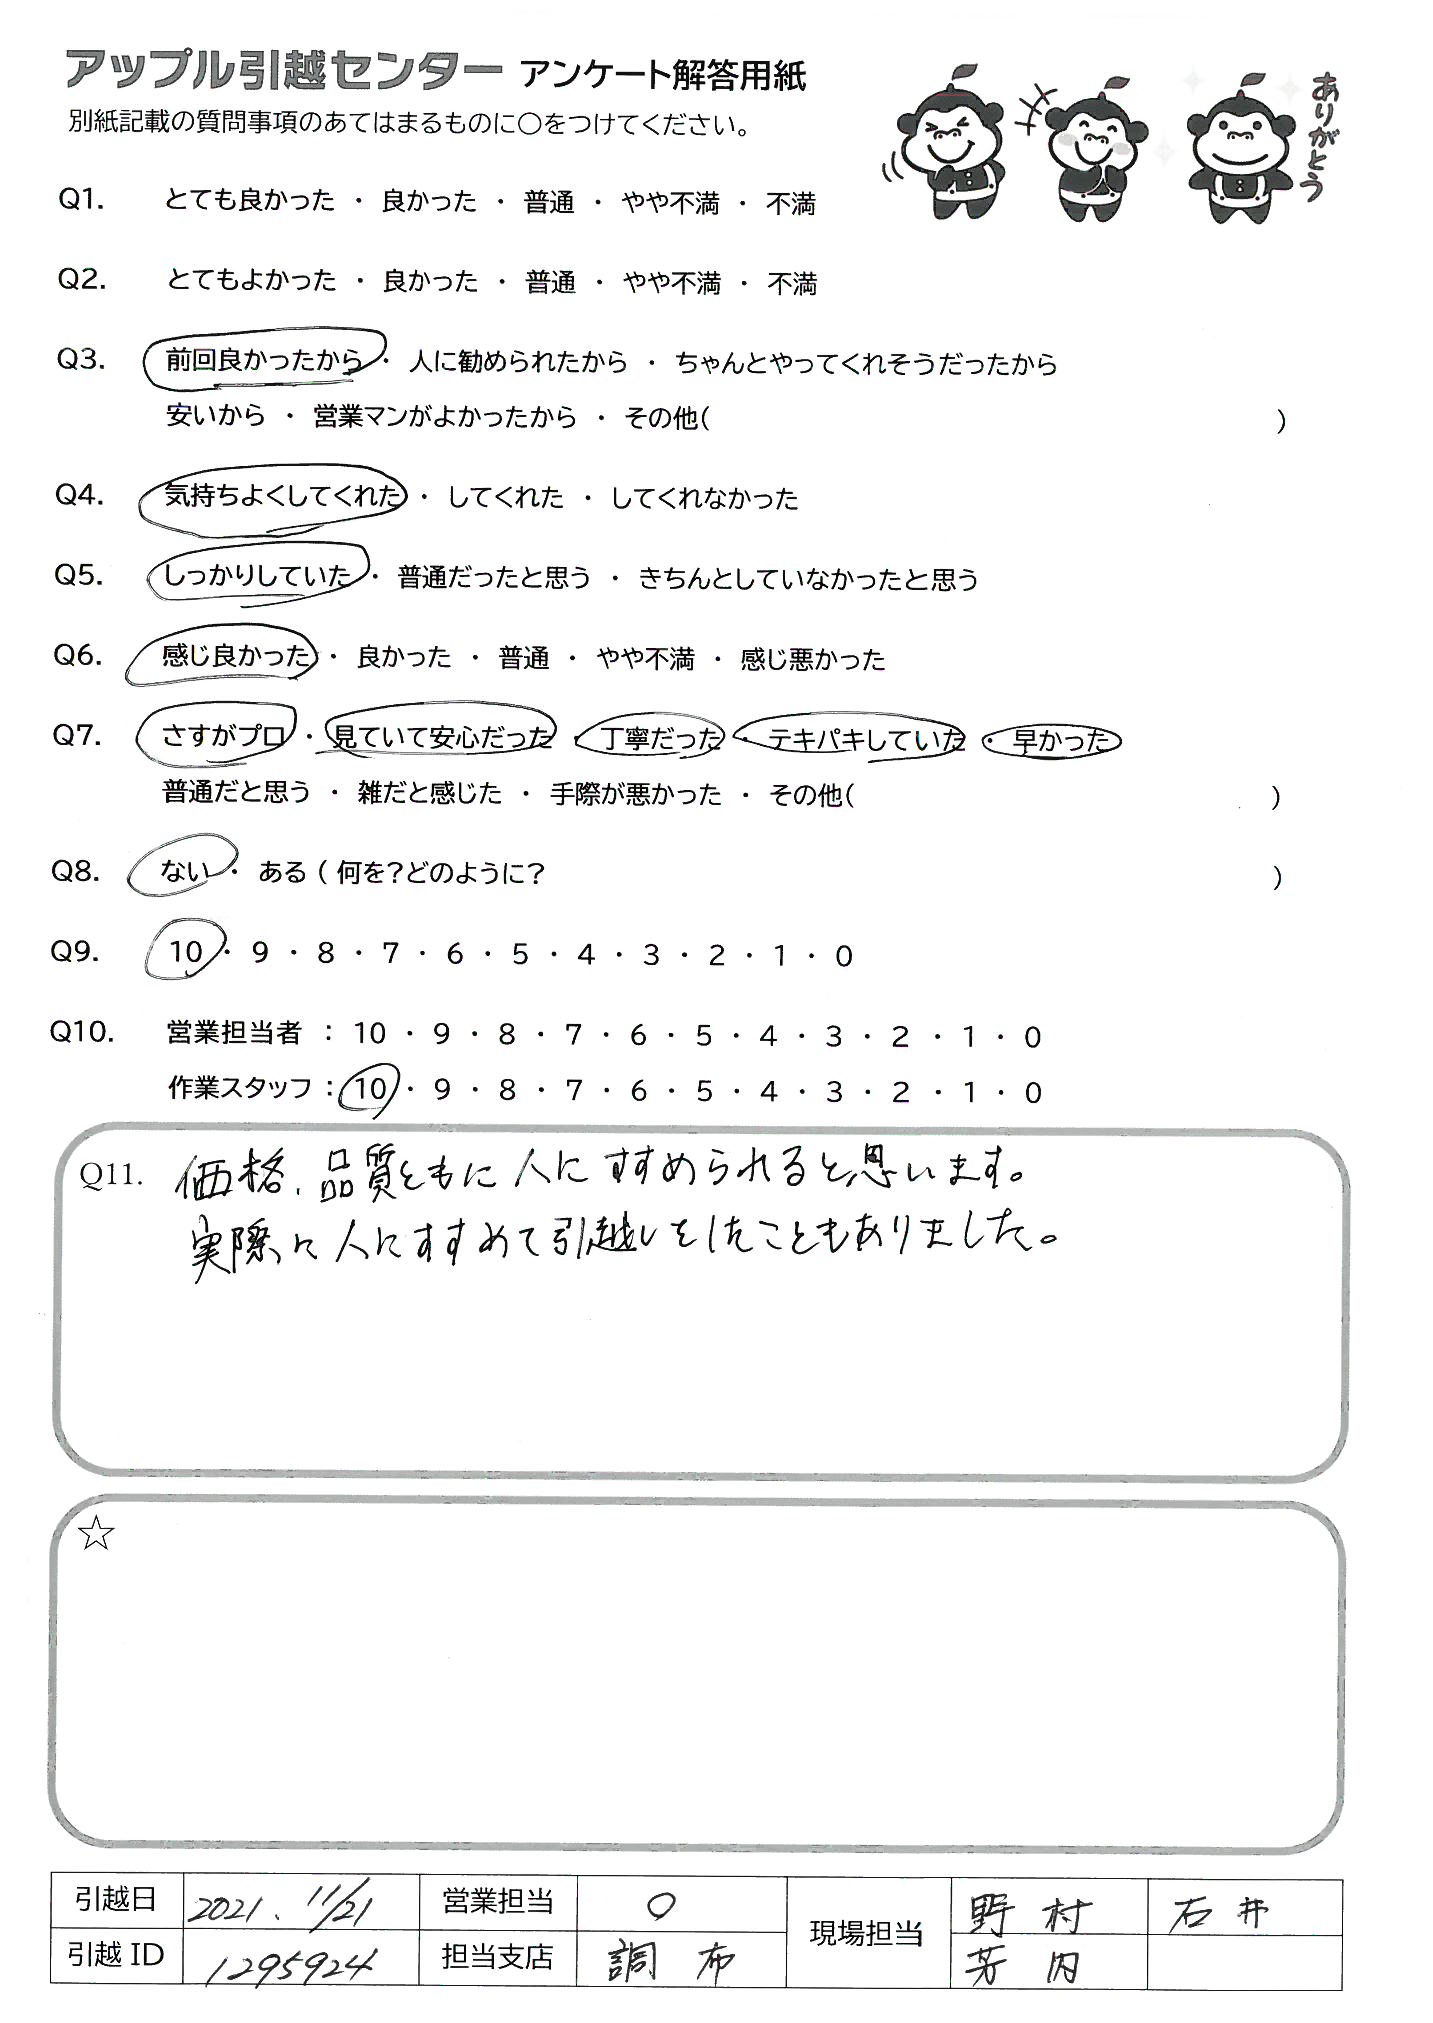 アップル引越センター アンケート解答用紙
別紙記載の質問事項のあてはまるものに〇をつけてください。
ありがとう
Q1. とても良かった ・ 良かった ・ 普通 ・ やや不満 ・ 不満
Q2. とてもよかった ・ 良かった ・ 普通 ・ やや不満 ・ 不満
Q3. 前回良かったから ・ 人に勧められたから ・ ちゃんとやってくれそうだったから
安いから ・ 営業マンがよかったから ・ その他( )
Q4. 気持ちよくしてくれた ・ してくれた ・ してくれなかった
Q5. しっかりしていた ・ 普通だったと思う ・ きちんとしていなかったと思う
Q6. 感じ良かった ・ 良かった ・ 普通 ・ やや不満 ・ 感じ悪かった
Q7. さすがプロ ・ 見ていて安心だった ・ 丁寧だった ・ テキパキしていた ・ 早かった
普通だと思う ・ 雑だと感じた ・ 手際が悪かった ・ その他( )
Q8. ない ・ ある ( 何を?どのように? )
Q9. 10 ・ 9 ・ 8 ・ 7 ・ 6 ・ 5 ・ 4 ・ 3 ・ 2 ・ 1 ・ 0
Q10. 営業担当者 : 10 ・ 9 ・ 8 ・ 7 ・ 6 ・ 5 ・ 4 ・ 3 ・ 2 ・ 1 ・ 0
作業スタッフ : 10 ・ 9 ・ 8 ・ 7 ・ 6 ・ 5 ・ 4 ・ 3 ・ 2 ・ 1 ・ 0
Q11. 価格、品質ともに人にすすめられると思います。
実際に人にすすめて引越しをしたこともありました。
☆
引越日 2021. 11/21 営業担当 〇 現場担当 野村 石井
引越 ID 1295924 担当支店 調布 芳内